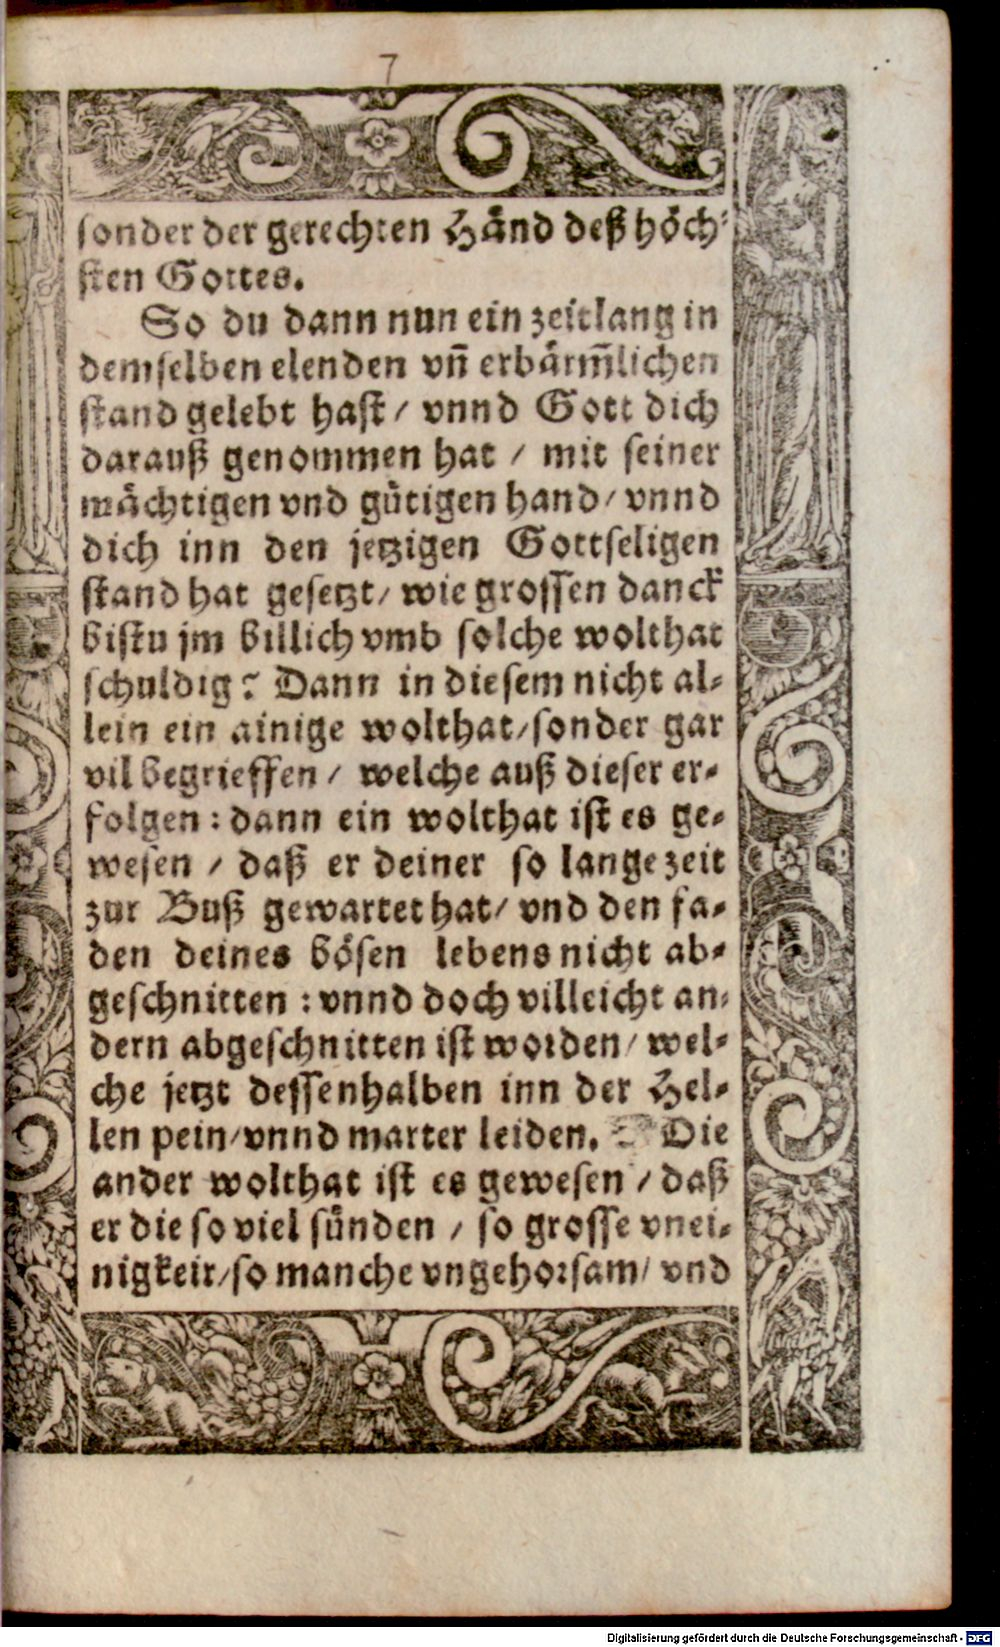 7
sonder der gerechten Händ deß höch-
sten Gottes.
So du dann nun ein zeitlang in
demselben elenden vñ erbärm̃lichen
stand gelebt hast / vnnd Gott dich
darauß genommen hat / mit seiner
mächtigen vnd gütigen hand / vnnd
dich inn den jetzigen Gottseligen
stand hat gesetzt / wie grossen danck
bistu jm billich vmb solche wolthat
schuldig? Dann in diesem nicht al-
lein ein ainige wolthat / sonder gar
vil begrieffen / welche auß dieser er-
folgen : dann ein wolthat ist es ge-
wesen / daß er deiner so lange zeit
zur Buß gewartet hat / vnd den fa-
den deines bösen lebens nicht ab-
geschnitten : vnnd doch villeicht an-
dern abgeschnitten ist worden / wel-
che jetzt dessenhalben inn der Hel-
len pein / vnnd marter leiden. Die
ander wolthat ist es gewesen / daß
er die so viel sünden / so grosse vnei-
nigkeit / so manche vngehorsam / vnd
Digitalisierung gefördert durch die Deutsche Forschungsgemeinschaft - DFG